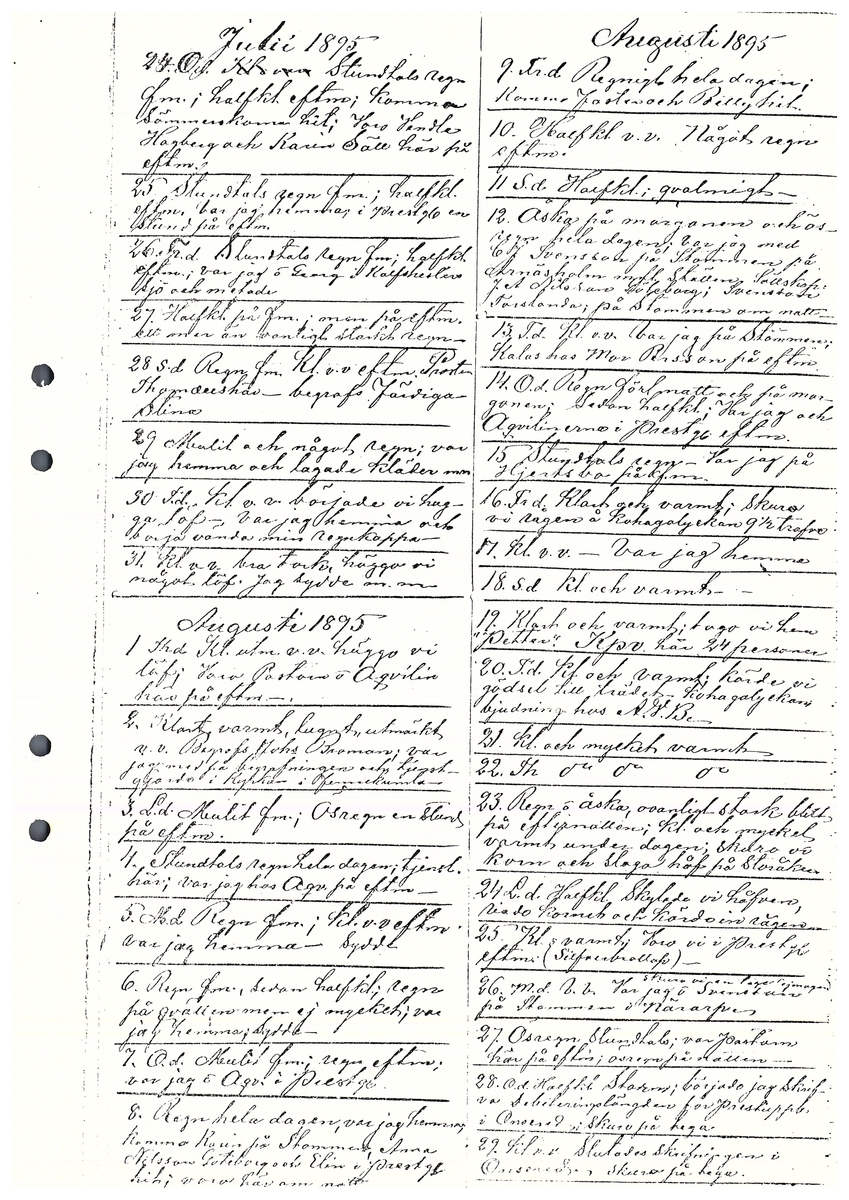 Julii 1895
24. O.d. Stundtals regn
fm.; halfkl. eftm; komma
Sömmerskorna hit; Voro Vendla
Hagberg och Karin Säll här på
eftm.
25 Stundtals regn fm.; halfkl.
eftm. var jag hemma; i Prestgo en
stund på eftm.
26. Fr.d. Stundtals regn fm; halfkl.
eftm.; var jag o Georg i
sjö och metade
27 Halfkl. på fm.; men på eftm.
ett mer än vanligt starkt regn—
28 S.d Regn fm. Kl. v.v eftm. Prosten
— begrofs
Stina
29 Mulit och något regn; var
jag hemma och lagade kläder
30 T.d. Kl. v. v. började vi hug-
ga löf— var jag hemma och
börja vända min regnkappa—
31. Kl. v.v. bra tork, höggo vi
något löf. Jag sydde
Augusti 1895
1 Thd Kl. utm. v.v. höggo vi
löf; Voro Pastorn o Aqvilin
här på eftm—.
2. Klart, varmt, lugnt, utmärkt
v.v. Begrofs Johs Broman; var
jag med på begrafningen och tjenst-
gjorde i Kyrkan i
3. L.d. Mulit fm.; Ösregn en stund
på eftm.
4. Stundtals regn hela dagen; tjenst.
här; var jag hos Aqv. på eftm—
5. M.d Regn fm.; kl. v.v eftm.
var jag hemma— Sydde
6. Regn fm., sedan halfkl; regn
på qvällen men ej mycket; var
jag hemma; sydde—
7. O.d. Mulit fm.; regn eftm;
var jag o Aqv. i Prestgo.
8. Regn hela dagen, var jag hemma,
komma Karin på Stommen, Anna
Nilsson Göteborg och Elin i Prestgo
hit; voro här om natt
Augusti 1895
9. Fr.d Regnigt hela dagen;
Komma Pastern och Billy hit.
10. Halfkl. v.v. Något regn
eftm.
11 S.d. Halfkl.; qvalmigt—
12. Åska på morgonen och ös-
regn hela dagen, var jag med
Svensson på Stommen på
Arnäsholm
Nilsson Göteborg; Svensson
på Stommen om natt—
13, T.d. Kl. v.v. var jag på Stommen;
Kalas hos Mor Persson på eftm.
14. O.d. Regn förl. natt och på mor-
gonen; Sedan halfkl; Var jag och
Aqvilinerna i Prestgo eftm.
15 Stundtals regn— Var jag på
Hjertsbo på fm.
16. Fr.d. Klart och varmt; Skuro
vi rågen å Kohagalyckan 9 1/2 trafve
17. Kl. v.v. — Var jag hemma
18. S.d Kl. och varmt—
19. Klart och varmt; togo vi hem
"Petter". Kpv. här 24 personer
20. T.d. Kl och varmt; körde vi
gödsel till trädet— Kohagalyckan;
bjudning hos A.P.B.—
21. Kl. och mycket varmt
22. Th do do do
23. Regn o åska, ovanligt stark blixt
på efternatten; kl. och mycket
varmt under dagen; Skuro vi
korn och sloga håf på Storåker
24 L.d. Halfkl. Skylade vi håfven,
och körde in rågen—
25. Kl. o varmt; Voro vi i Prestgo
eftm: (Silfverbröllop)—
26. M.d V.v. Var jag o Svensson
på Stommen i Kärarpe
27. Ösregn Stundtals; var Pastorn
här på eftm; ösregn på natten—
28. O.d. Halfkl. Storm; började jag Skrif-
va Debiteringslängden för Prestuppb.
i Onsered; Skuro på hega
29. Kl v.v Slutades Skrifningen i
Onsered; skuro på hega.